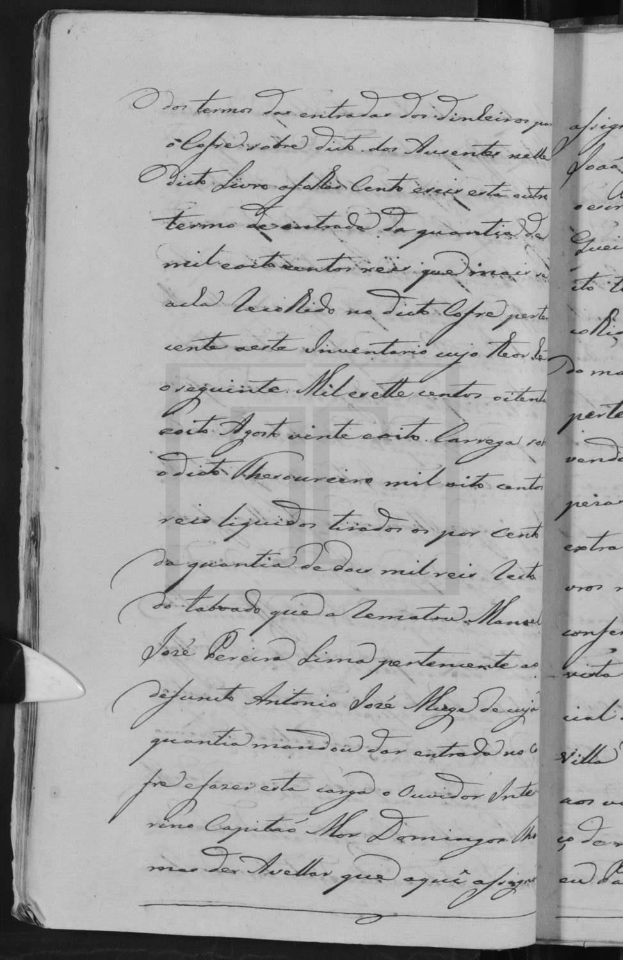 dos termos das entradas dos dinheiros pa
o Cofre sobre dicto dos Auzentes nelle
dicto Livro afolhas Cento eseis esta outro
termo de entrada da quantia de
mil eoito centos reis que mais se
acha recolhido no dicto Cofre perten
cente aeste Inventario cujo theor he
oseguinte. Mil esette centos oitenta
eoito Agosto vinte eoito. Carrega so
odicto Thesoureiro mil oito centos
reis liquidos tirados os por cento
da quantia de dous mil reis resto
do taboado que a rematou Manoel
José Pereira Lima pertencente ao
defunto Antonio José de cuja
quantia mandou dar entrada no Co
fre efazer esta carga o Ouvidor Inte
rino Capitaõ Mor Domingos Tho
mas der Avellar que aqui asignou
asign
Joaõ
oescri
Quei
ito t
do ma
perte
vendo
extra
vros
confer
vista
cial
Villa
aos v
eu